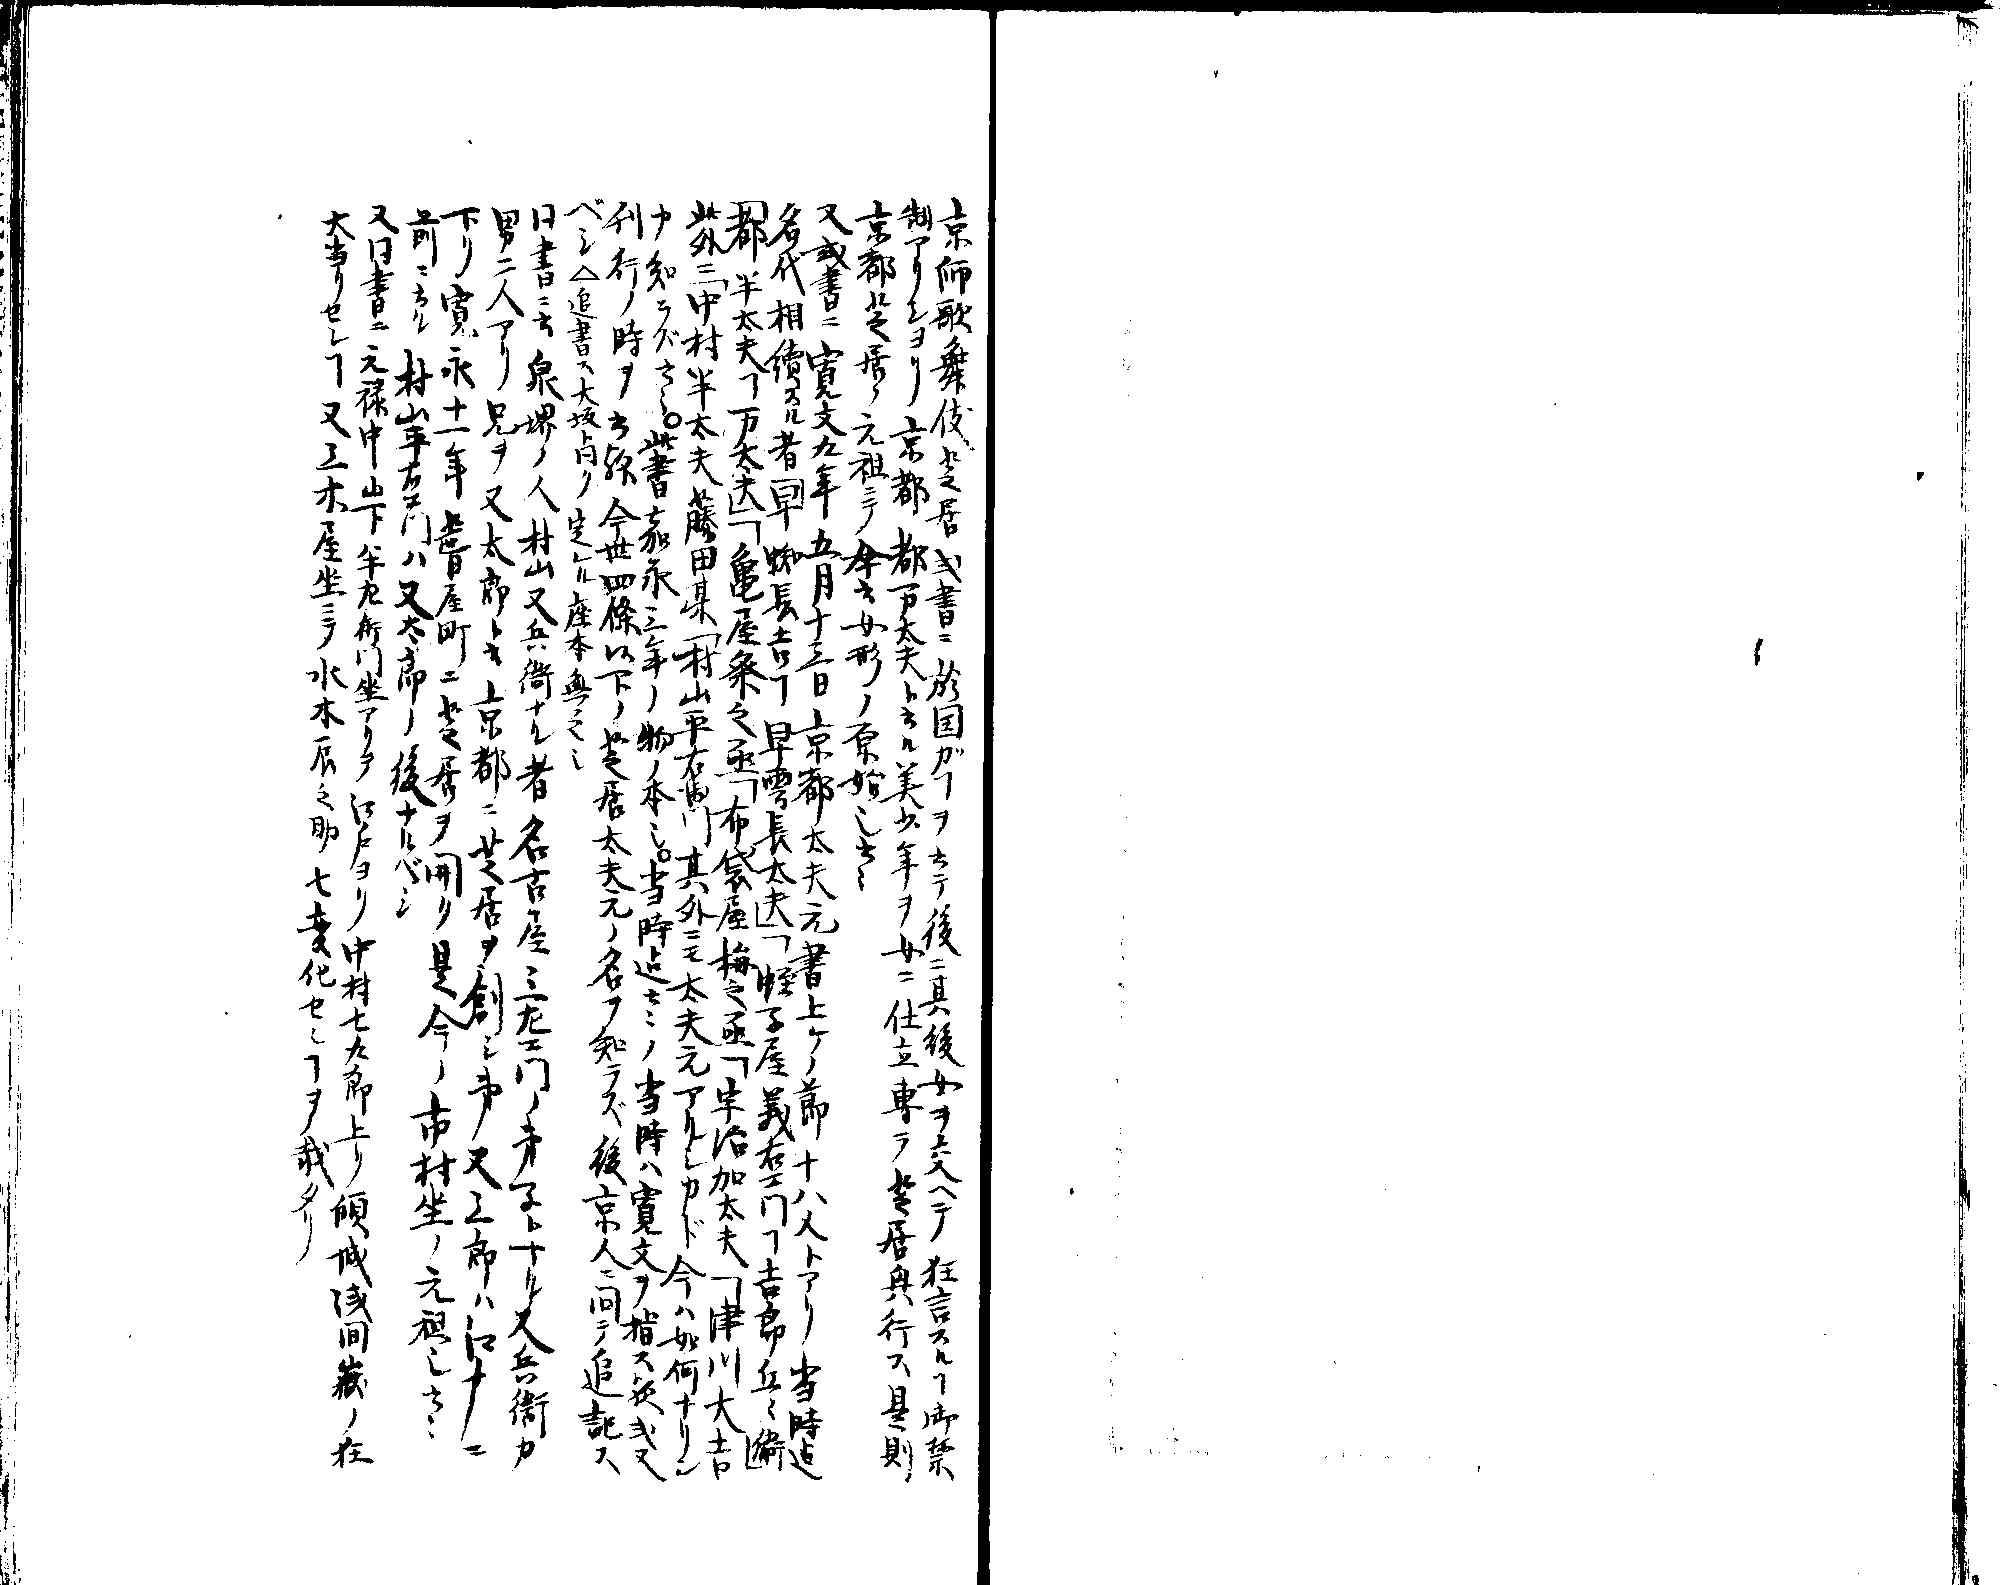 京師歌舞伎芝居或書ニ於国ガヿヲ云テ後ニ其後女ヲ交ヘテ狂言スルヿ御禁
制アリシヨリ京都都万太夫ト云ル美少年ヲ女ニ仕立専ラ芝居興行ス是則
京都芝居ノ元祖ニテ傘云女形ノ原始也云々
又或書ニ寛文九年五月十三日京都太夫元書上ケノ節十八人トアリ当時迄
名代相續スル者「早蜘長吉ヿ早雲長太夫」「蛭子屋義右エ門ヿ吉郎兵衛」
「都半太夫ヿ万太夫」「亀屋粂之丞「布袋屋梅之丞「宇治加太夫「津川大吉
此外ニ「中村半太夫藤田某「村山平右衛門其外ニモ太夫元アリシカド今ハ如何ナリシ
カ知ラズ云々。此書嘉永三年ノ物ノ本也。当時迄云々ノ当時ハ寛文ヲ指ス歟或又
刊行ノ時ヲ云歟今世四條以下ノ芝居太夫元ノ名ヲ知ラズ後京人ニ問テ追記ス
ベシ△追書ス大坂ト同ク定レル座本無之也
同書ニ云泉堺ノ人村山又兵衛ナル者名古屋三左エ門ノ弟子トナル又兵衛カ
男二人アリ兄ヲ又太郎ト云京都ニ芝居ヲ創シ弟又三郎ハ江戸ニ
下リ寛永十一年葺屋町ニ芝居ヲ開ク是今ノ市村坐ノ元祖也云々
前ニ云ル村山平右エ門ハ又太郎ノ後ナルベシ
又同書ニ元禄中山下半左衛門坐アリテ江戸ヨリ中村七九郎上リ傾城浅間嶽ノ狂
大当リセシヿ又三木屋坐ニテ水木辰之助七変化セシヿヲ載タリ